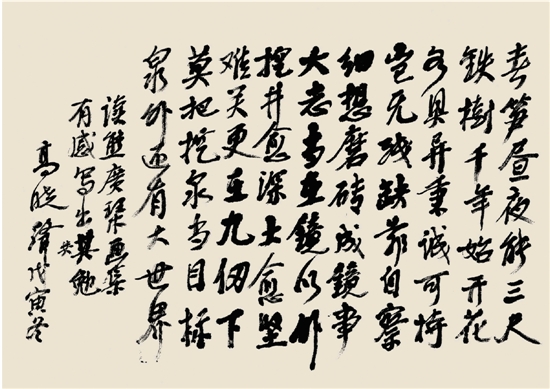 春笋昼夜能三尺
铁樹千年始开花
各具异秉诚可恃
岂无残缺靠自察
细想磨砖成镜事
大志当在镜以外
挖井愈深土愈坚
难关更在九仞下
莫把挖泉当目标
泉外还有大世界
读熊廣琴画集
有感写出其勉
共
高晓聲戊寅冬